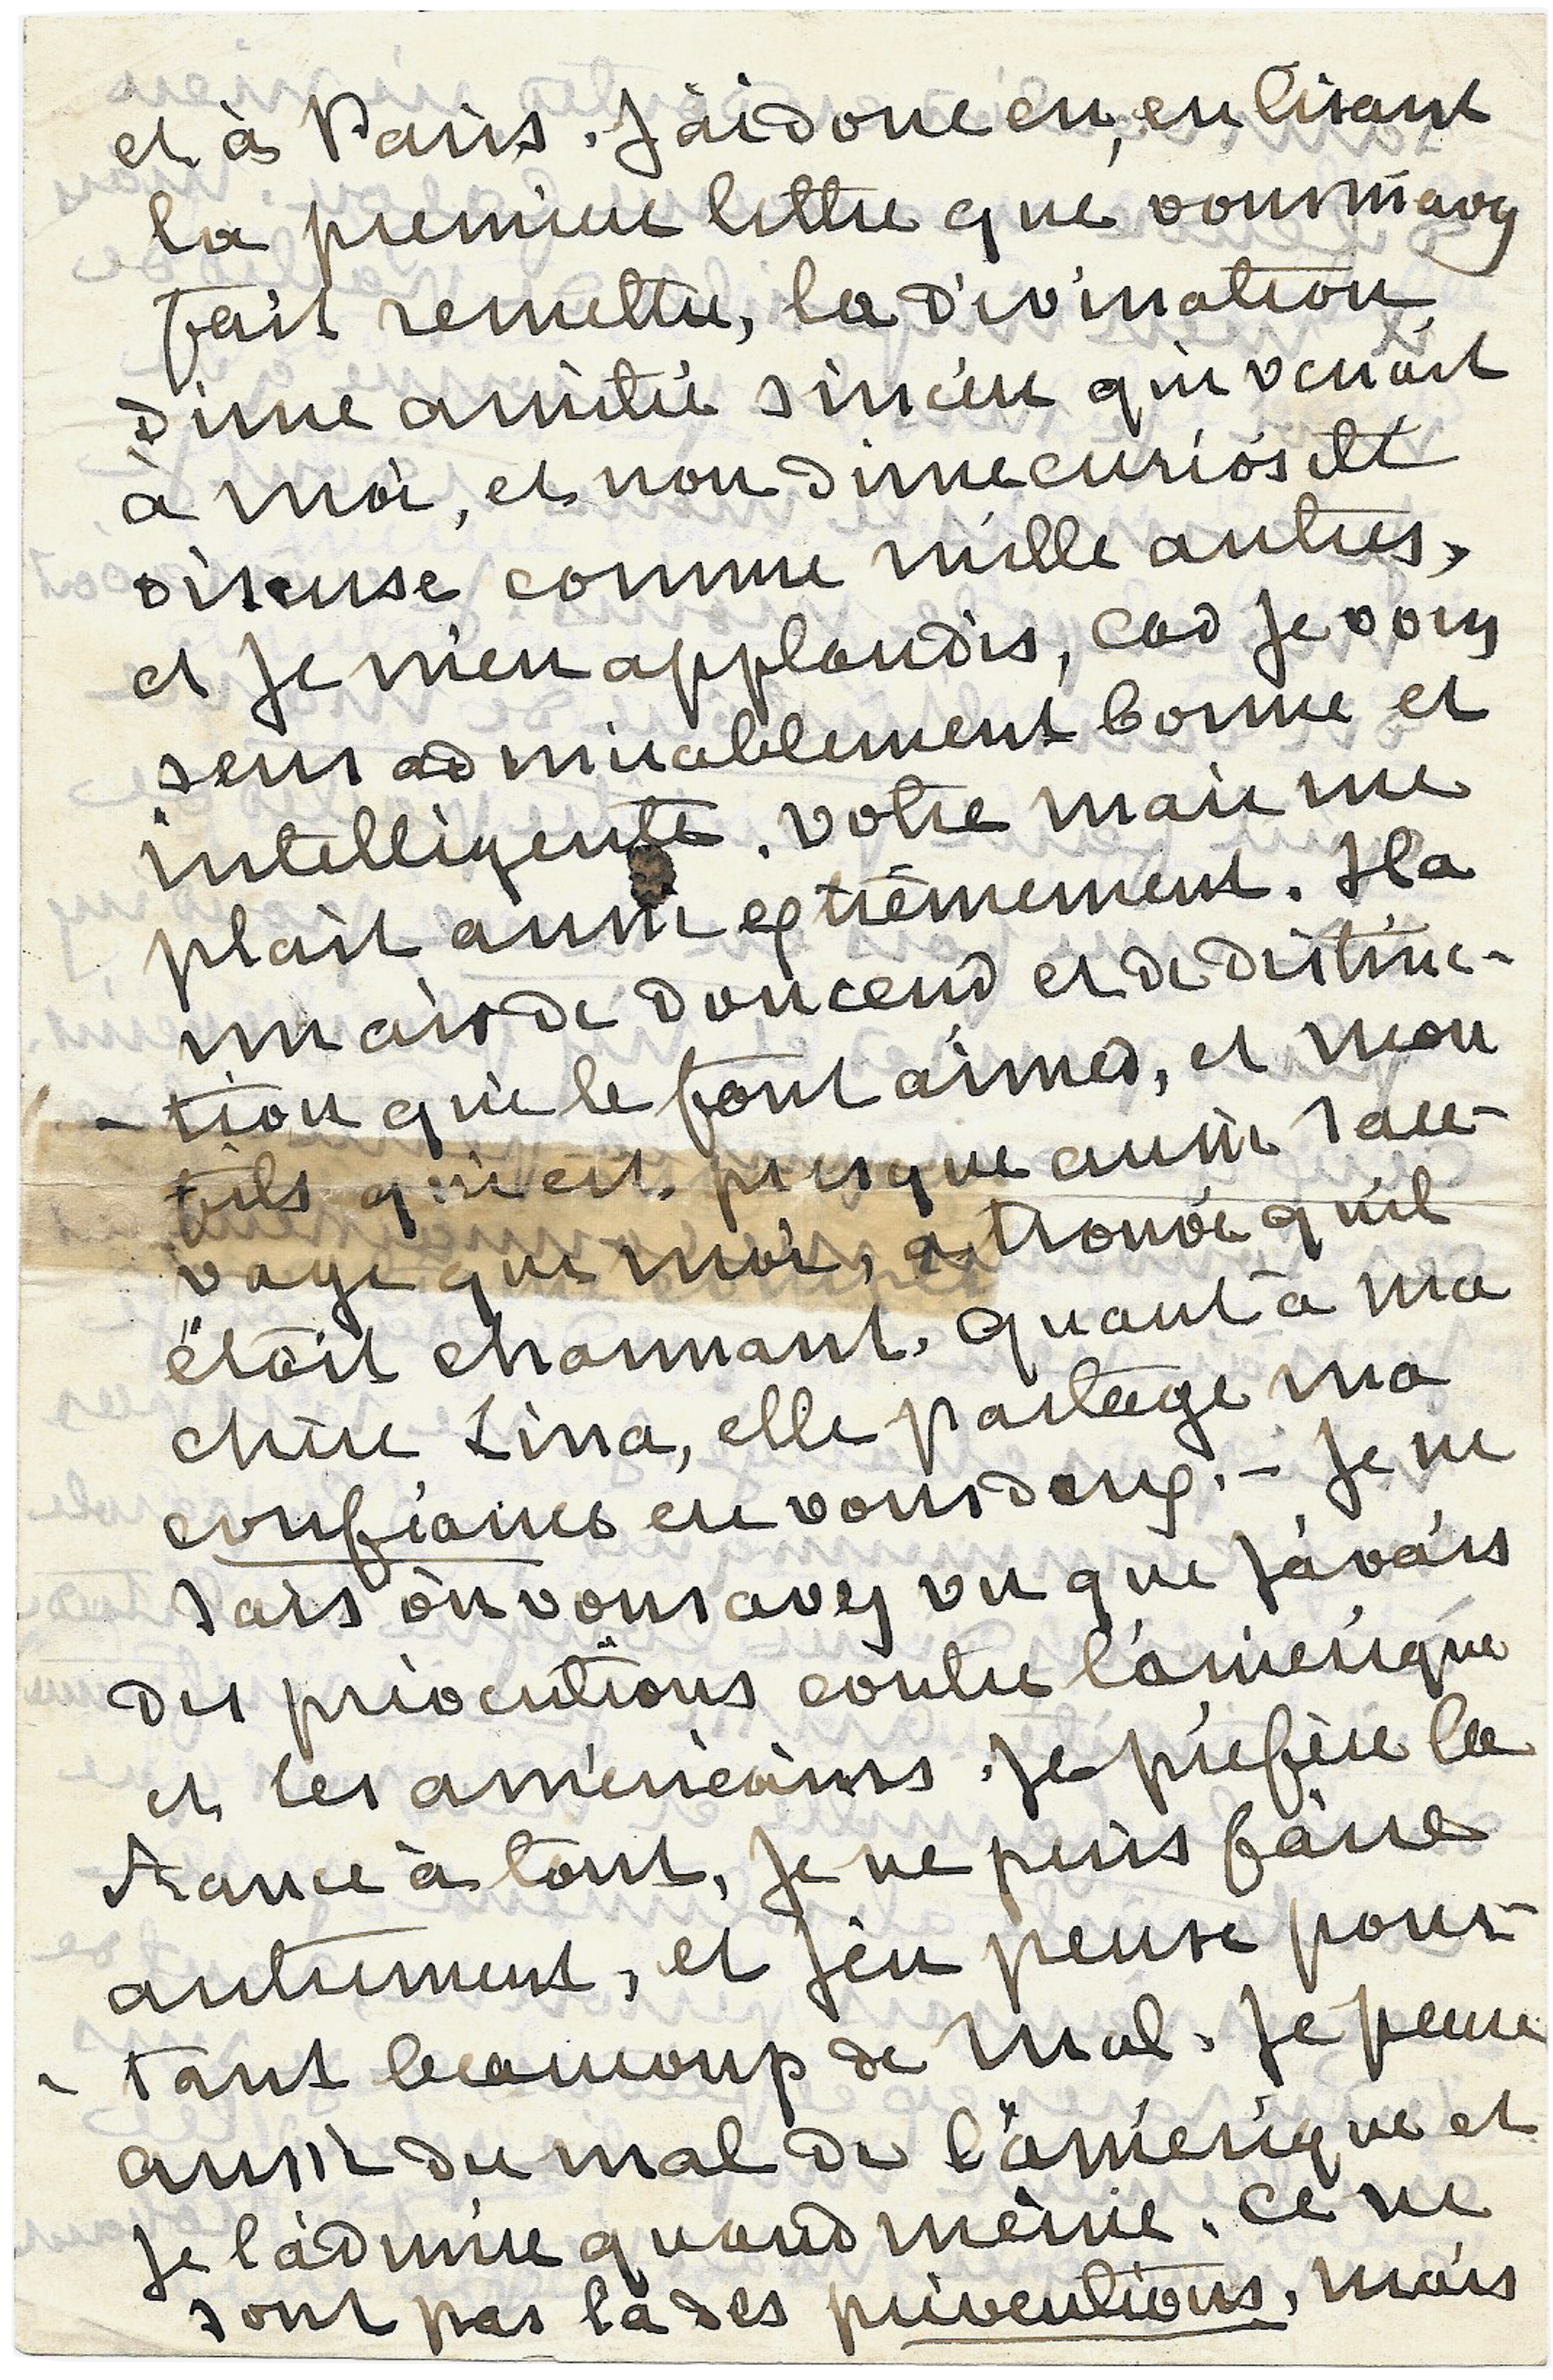 et à Paris. J'ai donc eu, en lisant
la première lettre que vous m'avez
fait remettre, la divination
d'une amitié sincère qui venait
à moi, et non d'une curiosité
oiseuse comme mille autres,
et je m'en applaudis, car je vous
sens admirablement bonne et
intelligente. votre mari me
plait aussi extrêmement. Il a
un air de douceur et de distinc-
- tion qui le font aimer, et mon
fils qui est presque aussi sau-
vage que moi, a trouvé qu'il
était charmant. quant à ma
chère Lina, elle partage ma
confiance en vous deux. – Je ne
sais où vous avez vu que j'avais
des préventions contre l'amérique
et les américains. Je préfère la
France à tout, je ne puis faire
autrement, et j'en pense pour-
- tant beaucoup de mal. Je pense
aussi du mal de l'amérique et
je l'admire quand même. Ce ne
sont pas là des préventions, mais